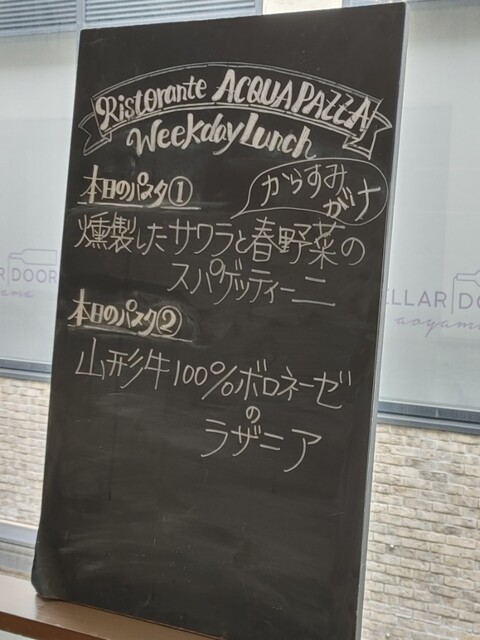 Ristorante ACQUAPAZZA
Weekday Lunch
本日のパスタ①
からすみ
がけ
燻製したサワラと春野菜の
スパゲッティーニ
本日のパスタ②
山形牛100%ボロネーゼ
の
ラザニア
LAR DOOR
ELLAR DOOR
aoyama